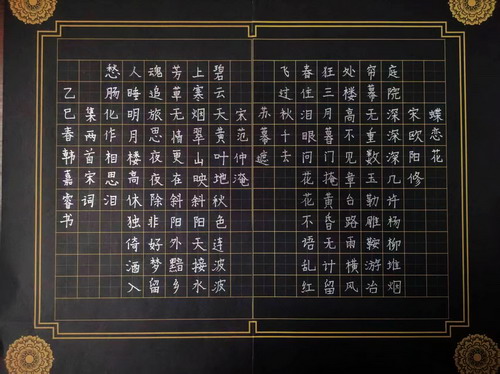 蝶恋花
宋欧阳修
庭院深深深几许杨柳堆烟
帘幕无重数玉勒雕鞍游冶
处楼高不见章台路雨横风
狂三月暮门掩黄昏无计留
春住泪眼问花花不语乱红
飞过秋千去
苏幕遮
宋范仲淹
碧云天黄叶地秋色连波波
上寒烟翠山映斜阳天接水
芳草无情更在斜阳外黯乡
魂追旅思夜夜除非好梦留
人睡明月楼高休独倚酒入
愁肠化作相思泪
集两首宋词
乙巳春韩嘉睿书